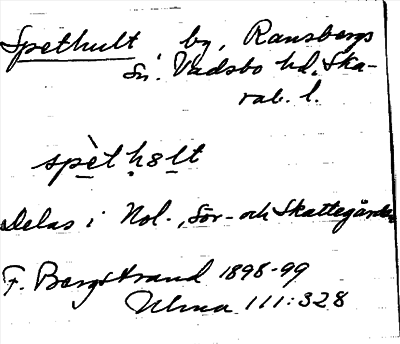 Spethult, by, Ransbergs
sn. Vadsbo hd, Ska-
rab. l.
spèthult
Delas i Nol-, Sör- och Skattegården
F. Bergstrand 1898-99
Ulma 111:328